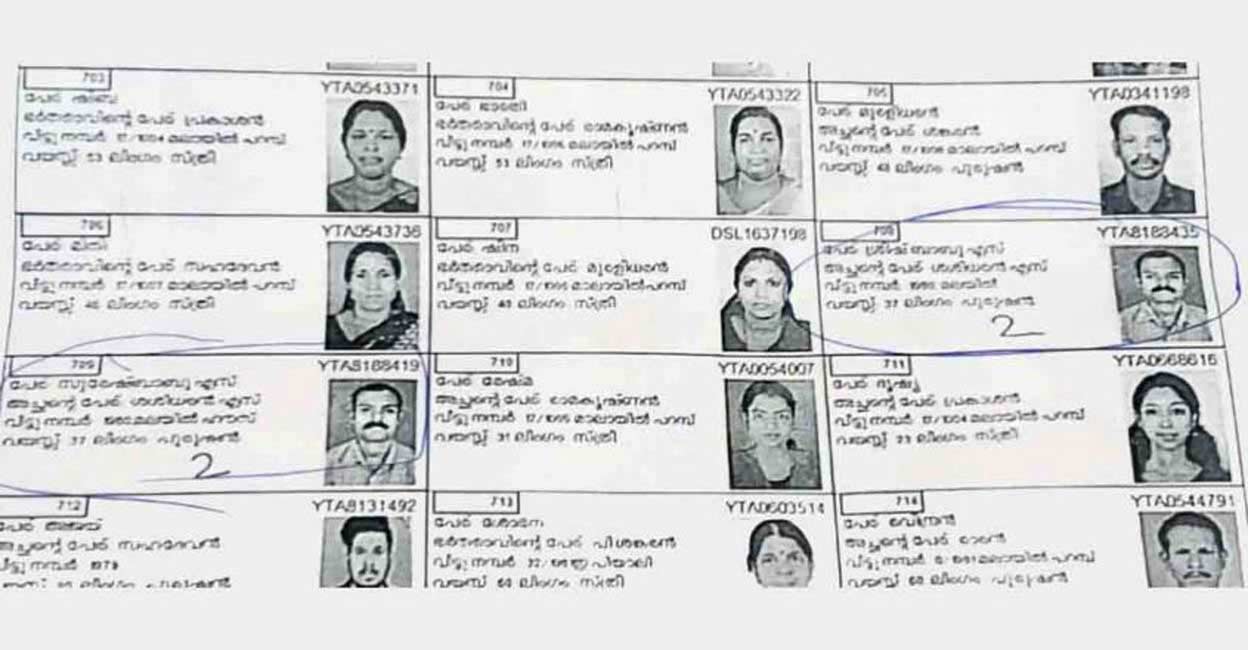 703
YTA0543371
പേര് ഷീബ
ഭർത്താവിന്റെ പേര് പ്രകാശൻ
വീട്ടു നമ്പർ 17/1004 മലായിൽ പറമ്പ്
വയസ്സ് 53 ലിംഗം സ്ത്രീ
704
YTA0543322
പേര് ഭാരതി
ഭർത്താവിന്റെ പേര് രാമകൃഷ്ണൻ
വീട്ടു നമ്പർ 17/1005 മാലായിൽ പറമ്പ്
വയസ്സ് 53 ലിംഗം സ്ത്രീ
705
YTA0341198
പേര് മുരളീധരൻ
അച്ഛന്റെ പേര് ശങ്കരൻ
വീട്ടു നമ്പർ 17/1006 മാലായിൽ പറമ്പ്
വയസ്സ് 48 ലിംഗം പുരുഷൻ
706
YTA0543736
പേര് മിനി
ഭർത്താവിന്റെ പേര് സഹദേവൻ
വീട്ടു നമ്പർ മാലായിൽ പറമ്പ്
വയസ്സ് ലിംഗം സ്ത്രീ
707
DSL1637198
പേര് ഷീന
ഭർത്താവിന്റെ പേര് മുരളീധരൻ
വീട്ടു നമ്പർ 17/1006 മാലായിൽ പറമ്പ്
വയസ്സ് ലിംഗം സ്ത്രീ
708
YTA8188435
പേര് ബാബു എസ്
അച്ഛന്റെ പേര് ശശിധരൻ എസ്
വീട്ടു നമ്പർ മലയിൽ
വയസ്സ് 37 ലിംഗം പുരുഷൻ
2
709
YTA8188419
പേര് സുരേഷ്ബാബു എസ്
അച്ഛന്റെ പേര് ശശിധരൻ എസ്
വീട്ടു നമ്പർ മലയിൽ ഹൗസ്
വയസ്സ് 37 ലിംഗം പുരുഷൻ
2
710
YTA0054007
പേര് രേഷ്മ
അച്ഛന്റെ പേര് രാമകൃഷ്ണൻ
വീട്ടു നമ്പർ 17/1005 മാലായിൽ പറമ്പ്
വയസ്സ് 31 ലിംഗം സ്ത്രീ
711
YTA0668616
പേര് ദൃശ്യ
അച്ഛന്റെ പേര് പ്രകാശൻ
വീട്ടു നമ്പർ 17/1004 മലായിൽ പറമ്പ്
വയസ്സ് 23 ലിംഗം സ്ത്രീ
712
YTA8131492
പേര് അജയ്
അച്ഛന്റെ പേര് സഹദേവൻ
വീട്ടു നമ്പർ
ലിംഗം പുരുഷൻ
713
YTA0603514
പേര് ശോഭന
ഭർത്താവിന്റെ പേര് പി ശങ്കരൻ
വീട്ടു നമ്പർ
വയസ്സ് ലിംഗം സ്ത്രീ
714
YTA0544791
പേര്
അച്ഛന്റെ പേര് രാമൻ
വീട്ടു നമ്പർ മലായിൽ പറമ്പ്
വയസ്സ് ലിംഗം പുരുഷൻ